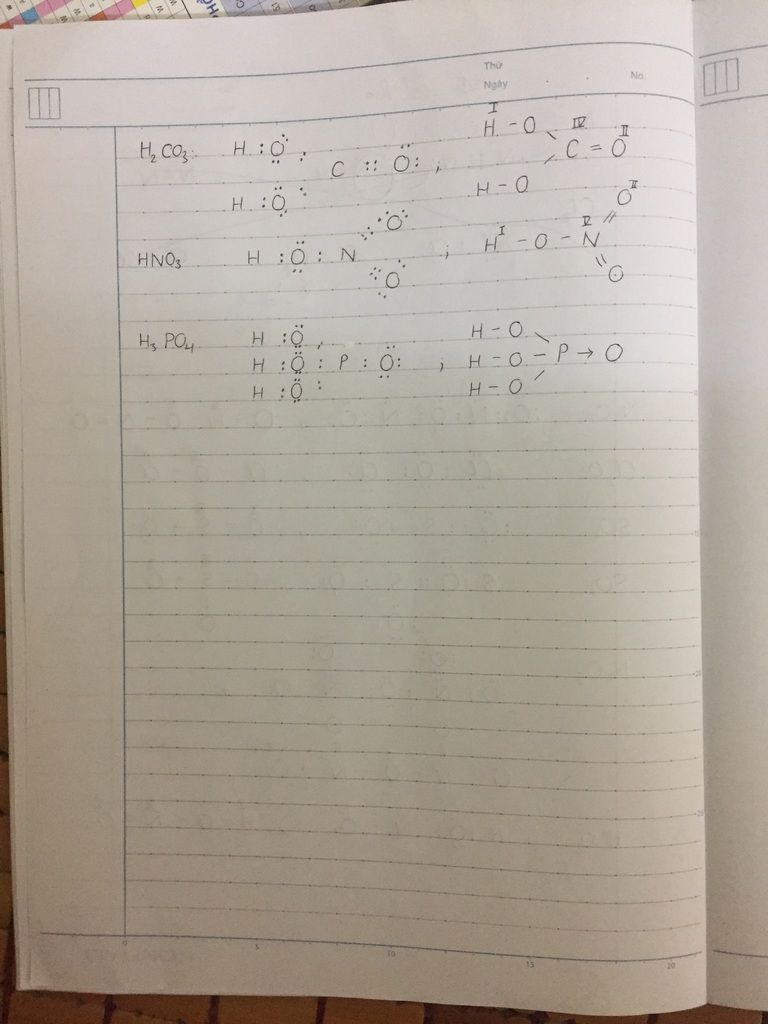 Thứ
Ngày No.
H₂CO₃: H :Ö: C :: Ö: ; H - O C = O
I IV II
H :Ö: H - O
HNO₃ H :Ö: N Ö Ö ; H - O - N O O
I V II
H₃PO₄ H :Ö: H - O
H :Ö: P :Ö: ; H - O - P → O
H :Ö: H - O
0 5 10 15 20